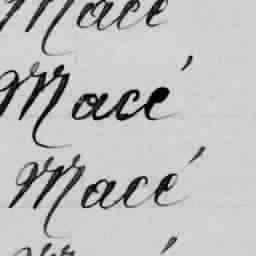 Macé
Macé
Macé